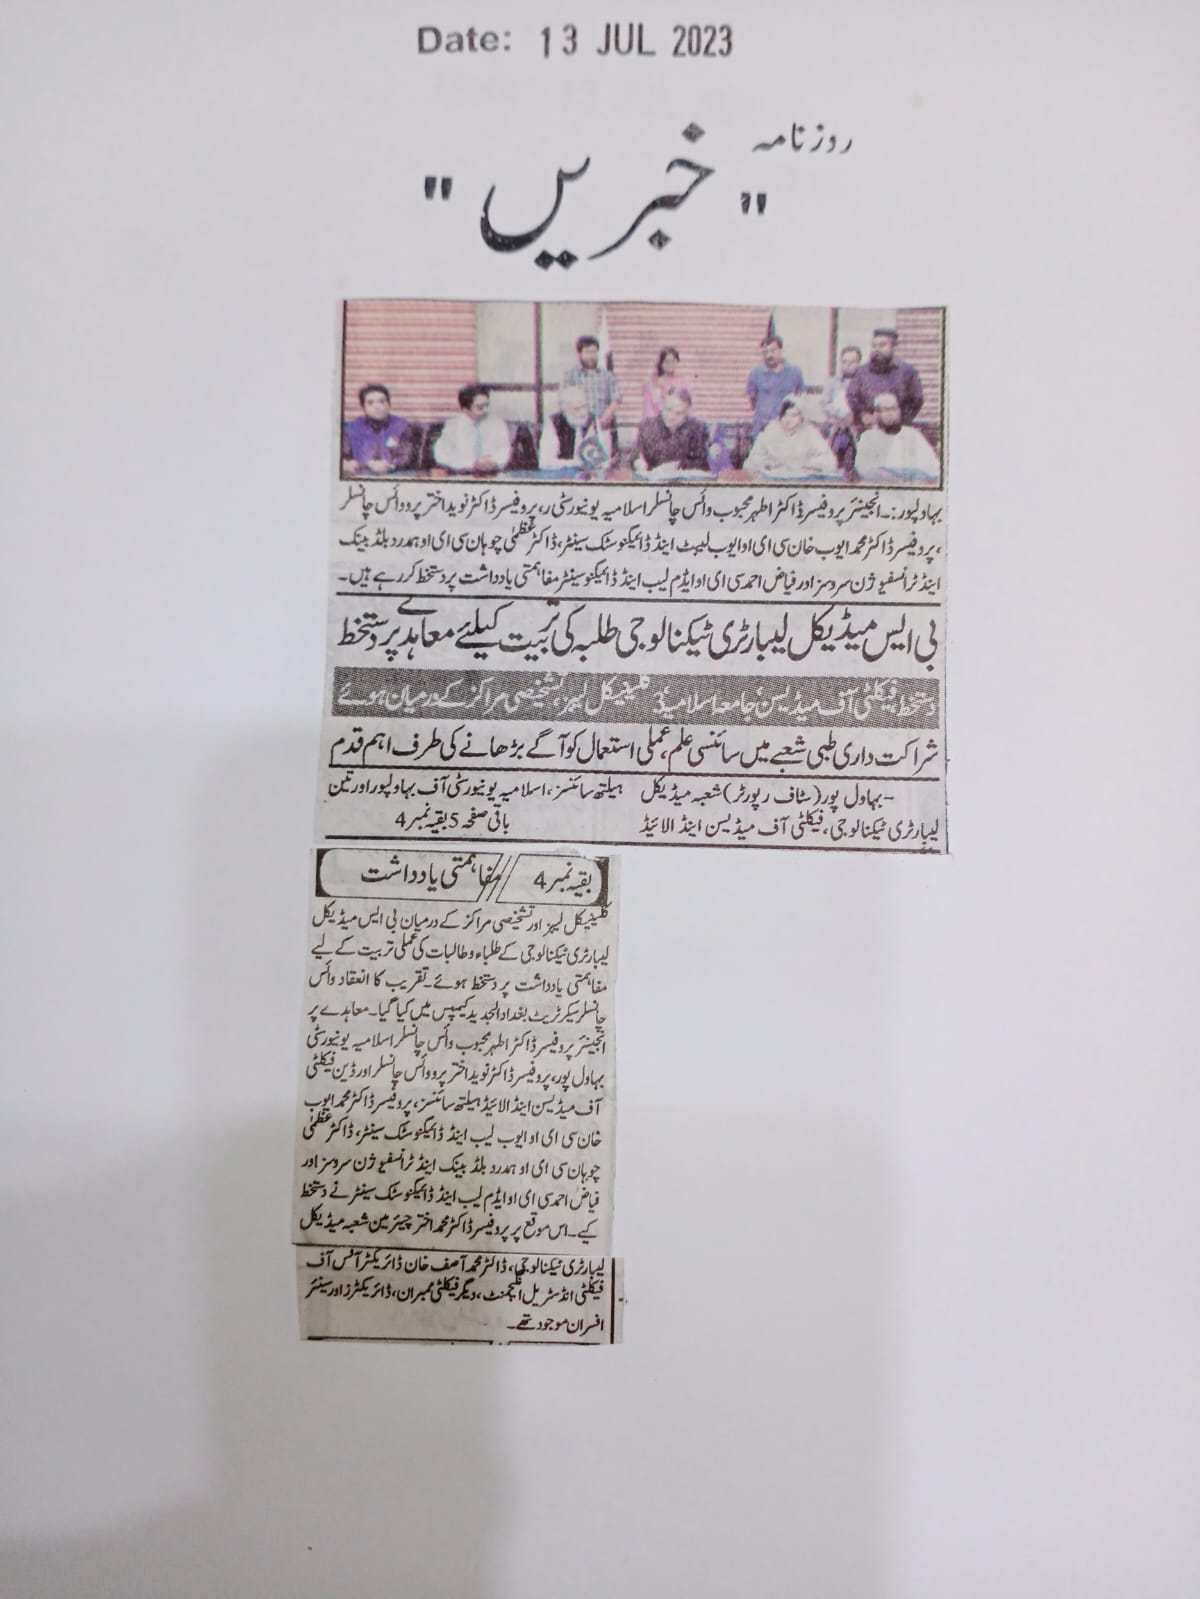 Date: 13 JUL 2023
روزنامہ
"خبریں"
بہاولپور:۔انجینئر پروفیسر ڈاکٹر اطہر محبوب وائس چانسلر اسلامیہ یونیورسٹی ر، پروفیسر ڈاکٹر نوید اختر پرو وائس چانسلر
،پروفیسر ڈاکٹر محمد ایوب خان سی ای او ایوب لیبٹ اینڈ ڈائیگنوسٹک سینٹر، ڈاکٹر عظمیٰ چوہان سی ای او ہمدرد بلڈ بینک
اینڈ ٹرانسفیوژن سروسز اور فیاض احمد سی ای او ایڈم لیب اینڈ ڈائیگنو سینٹر مفاہمتی یادداشت پر دستخط کر رہے ہیں۔
بی ایس میڈیکل لیبارٹری ٹیکنالوجی طلبہ کی تربیت کیلئے معاہدے پر دستخط
دستخط فیکلٹی آف میڈیسن، جامعہ اسلامیہ، 3 کلینیکل لیبز، تشخیصی مراکز کے درمیان ہوئے
شراکت داری طبی شعبے میں سائنسی علم، عملی استعمال کو آگے بڑھانے کی طرف اہم قدم
۔بہاول پور (سٹاف رپورٹر) شعبہ میڈیکل
لیبارٹری ٹیکنالوجی، فیکلٹی آف میڈیسن اینڈ الائیڈ
ہیلتھ سائنسز، اسلامیہ یونیورسٹی آف بہاولپور اور تین
باقی صفحہ 5 بقیہ نمبر 4
بقیہ نمبر 4 // مفاہمتی یادداشت
کلینیکل لیبز اور تشخیصی مراکز کے درمیان بی ایس میڈیکل
لیبارٹری ٹیکنالوجی کے طلباء و طالبات کی عملی تربیت کے لیے
مفاہمتی یادداشت پر دستخط ہوئے۔ تقریب کا انعقاد وائس
چانسلر سیکرٹریٹ بغداد الجدید کیمپس میں کیا گیا۔ معاہدے پر
انجینئر پروفیسر ڈاکٹر اطہر محبوب وائس چانسلر اسلامیہ یونیورسٹی
بہاول پور، پروفیسر ڈاکٹر نوید اختر پرو وائس چانسلر اور ڈین فیکلٹی
آف میڈیسن اینڈ الائیڈ ہیلتھ سائنسز، پروفیسر ڈاکٹر محمد ایوب
خان سی ای او ایوب لیب اینڈ ڈائیگنوسٹک سینٹر، ڈاکٹر عظمیٰ
چوہان سی ای او ہمدرد بلڈ بینک اینڈ ٹرانسفیوژن سروسز اور
فیاض احمد سی ای او ایڈم لیب اینڈ ڈائیگنوسٹک سینٹر نے دستخط
کیے۔ اس موقع پر پروفیسر ڈاکٹر محمد اختر چیئرمین شعبہ میڈیکل
لیبارٹری ٹیکنالوجی، ڈاکٹر محمد آصف خان ڈائریکٹر آفس آف
فیکلٹی انڈسٹریل انگیجمنٹ، دیگر فیکلٹی ممبران، ڈائریکٹرز اور سینئر
افسران موجود تھے۔